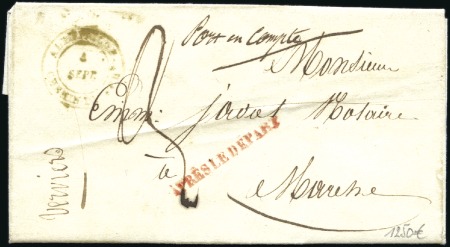 4
SEPT.
Port en Compte
Monsieur
Emm: Notaire
à
APRÈS LE DÉPART
Verviers
1250€